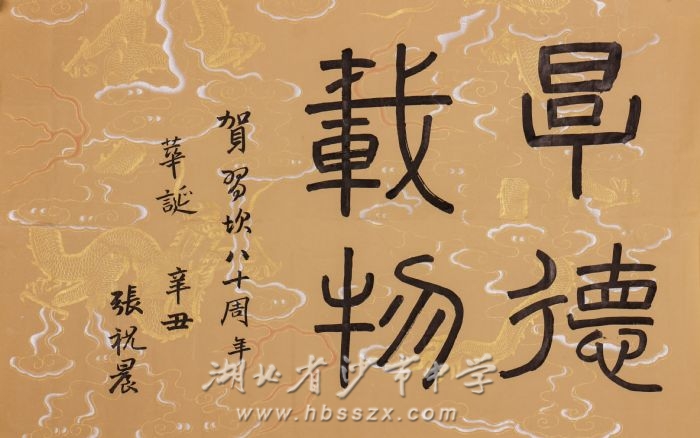 厚德
載物
賀習坎八十周年
華誕 辛丑
張祝晨
湖北省沙市中学
www.hbsszx.com